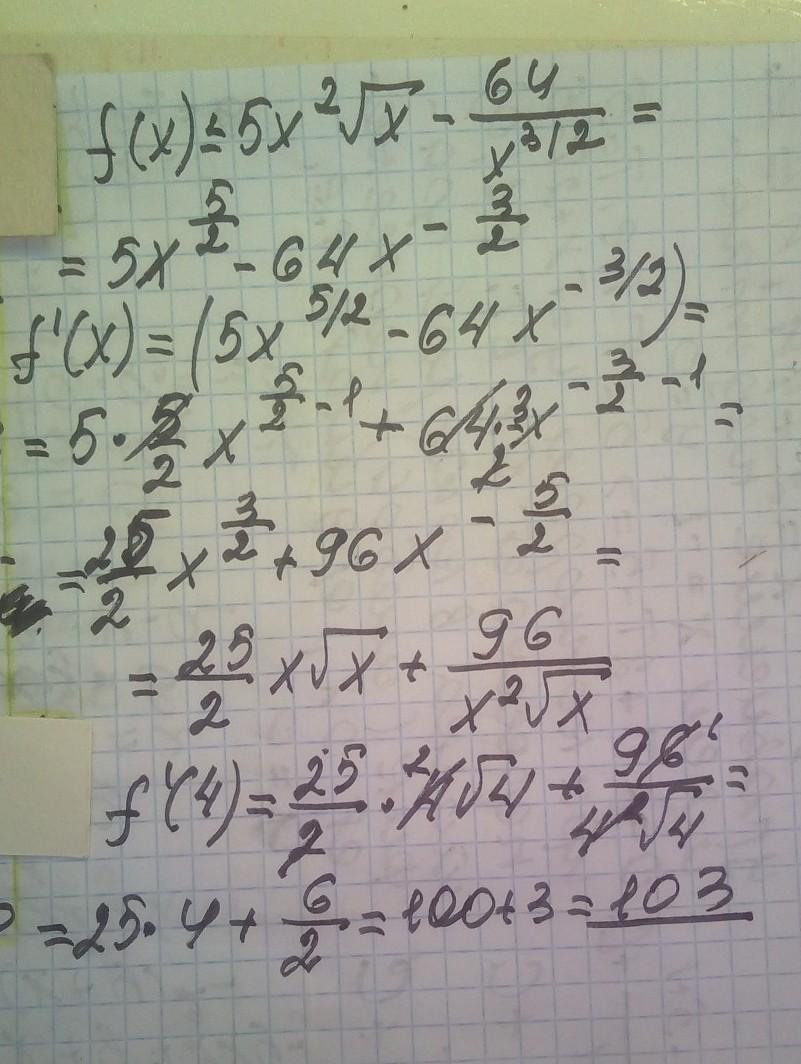 f(x) = 5x²√x - 64/x^3/2 =
= 5x^5/2 - 64x^-3/2
f'(x) = (5x^5/2 - 64x^-3/2) =
= 5·5/2 x^5/2-1 + 64·3/2 x^-3/2-1 =
= 25/2 x^3/2 + 96x^-5/2 =
= 25/2 x√x + 96/x²√x
f'(4) = 25/2 · 4²√4 + 96⁶/4²√4 =
= 25·4 + 6/2 = 100+3 = 103